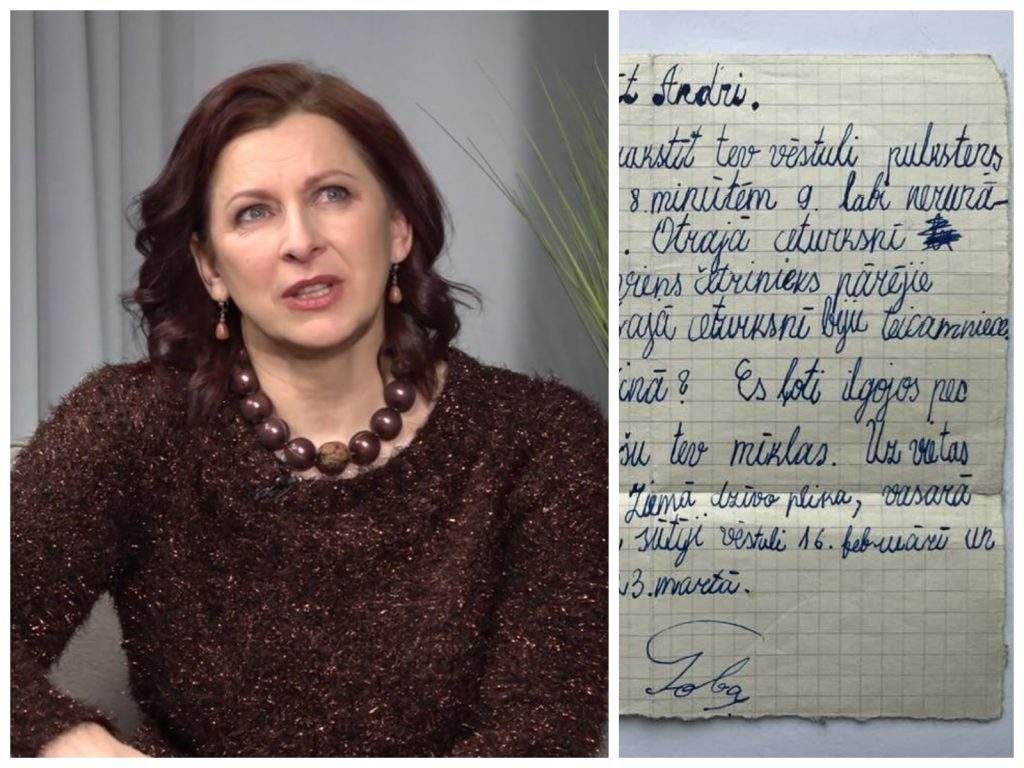 t Andri.
akstīt tev vēstuli pulkstens
8. minūtēm 9. labi nerunā-
. Otrajā ceturksnī
viens četrinieks pārējie
rajā ceturksnī biju teicamniece.
inā? Es ļoti ilgojos pec
šu tev mīklas. Uz vietas
Ziemā dzīvo plika, vasarā
sūtīji vēstuli 16. februārī un
3. martā.